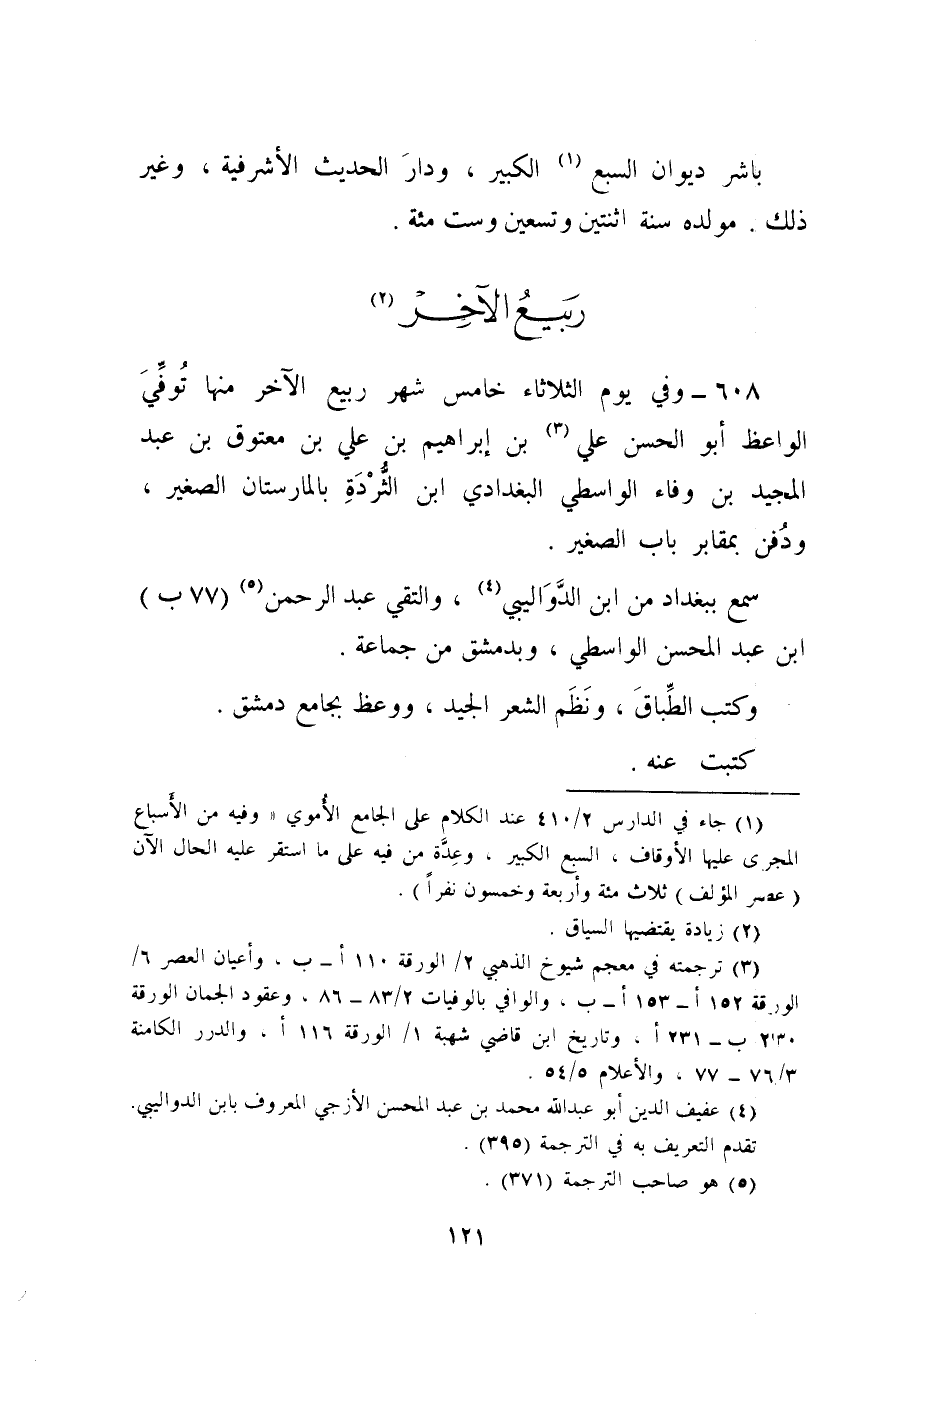 باشر ديوان السبع (١) الكبير ، ودارَ الحديث الأشرفية ، وغير
ذلك . مولده سنة اثنتين وتسعين وست مئة .
رَبيعُ الآخِر (٢)
٦٠٨ ـ وفي يوم الثلاثاء خامس شهر ربيع الآخر منها تُوفِّيَ
الواعظ أبو الحسن علي (٣) بن إبراهيم بن علي بن معتوق بن عبد
المجيد بن وفاء الواسطي البغدادي ابن الثُّرْدَةِ بالمارستان الصغير ،
ودُفن بمقابر باب الصغير .
سمع ببغداد من ابن الدَّوَاليبي (٤) ، والتقي عبد الرحمن (٥) (٧٧ ب )
ابن عبد المحسن الواسطي ، وبدمشق من جماعة .
وكتب الطِّباقَ ، ونَظَم الشعر الجيد ، ووعظ بجامع دمشق .
كتبت عنه .
(١) جاء في الدارس ٤١٠/٢ عند الكلام على الجامع الأُموي « وفيه من الأَسباع
المجرى عليها الأوقاف ، السبع الكبير ، وعِدَّة من فيه على ما استقر عليه الحال الآن
( عصر المؤلف ) ثلاث مئة وأربعة وخمسون نفراً ) .
(٢) زيادة يقتضيها السياق .
(٣) ترجمته في معجم شيوخ الذهبي ٢/ الورقة ١١٠ أ ـ ب ، وأعيان العصر ٦/
الورقة ١٥٢ أ ـ ١٥٣ أ ـ ب ، والوافي بالوفيات ٨٣/٢ ـ ٨٦ ، وعقود الجمان الورقة
٢٣٠ ب ـ ٢٣١ أ ، وتاريخ ابن قاضي شهبة ١/ الورقة ١١٦ أ ، والدرر الكامنة
٧٦/٣ ـ ٧٧ ، والأعلام ٥٤/٥ .
(٤) عفيف الدين أبو عبدالله محمد بن عبد المحسن الأزجي المعروف بابن الدواليبي.
تقدم التعريف به في الترجمة (٣٩٥) .
(٥) هو صاحب الترجمة (٣٧١) .
١٢١